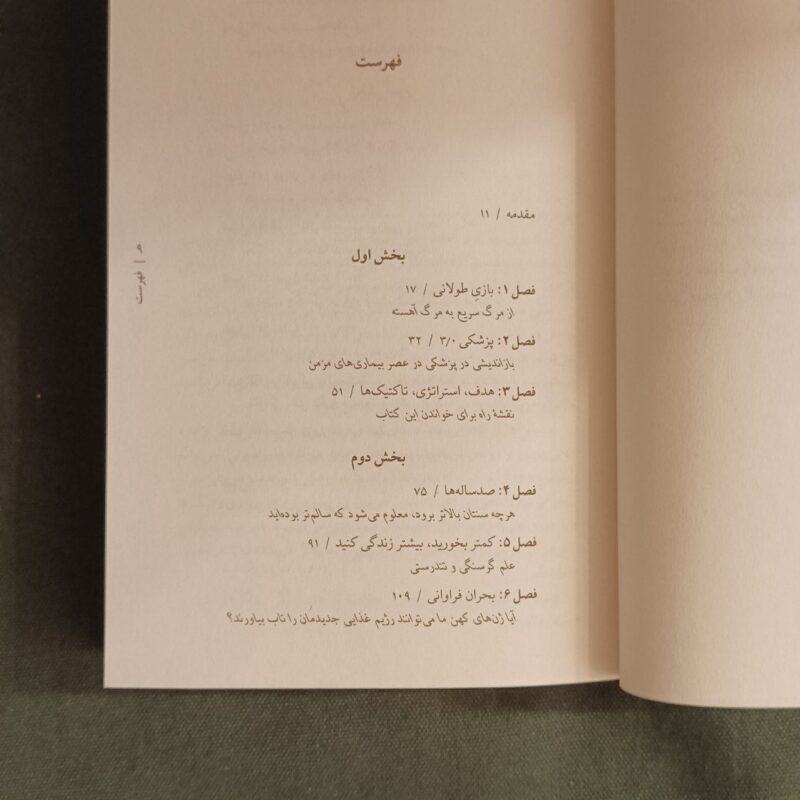 فهرست
مقدمه / ۱۱
بخش اول
فصل ۱: بازیِ طولانی / ۱۷
از مرگ سریع به مرگ آهسته
فصل ۲: پزشکی ۳/۰ / ۳۲
بازاندیشی در پزشکی در عصر بیماری‌های مزمن
فصل ۳: هدف، استراتژی، تاکتیک‌ها / ۵۱
نقشهٔ راه برای خواندن این کتاب
بخش دوم
فصل ۴: صدساله‌ها / ۷۵
هرچه سنتان بالاتر برود، معلوم می‌شود که سالم‌تر بوده‌اید
فصل ۵: کمتر بخورید، بیشتر زندگی کنید / ۹۱
علم گرسنگی و تندرستی
فصل ۶: بحران فراوانی / ۱۰۹
آیا ژن‌های کهن ما می‌توانند رژیم غذایی جدیدمان را تاب بیاورند؟
فهرست